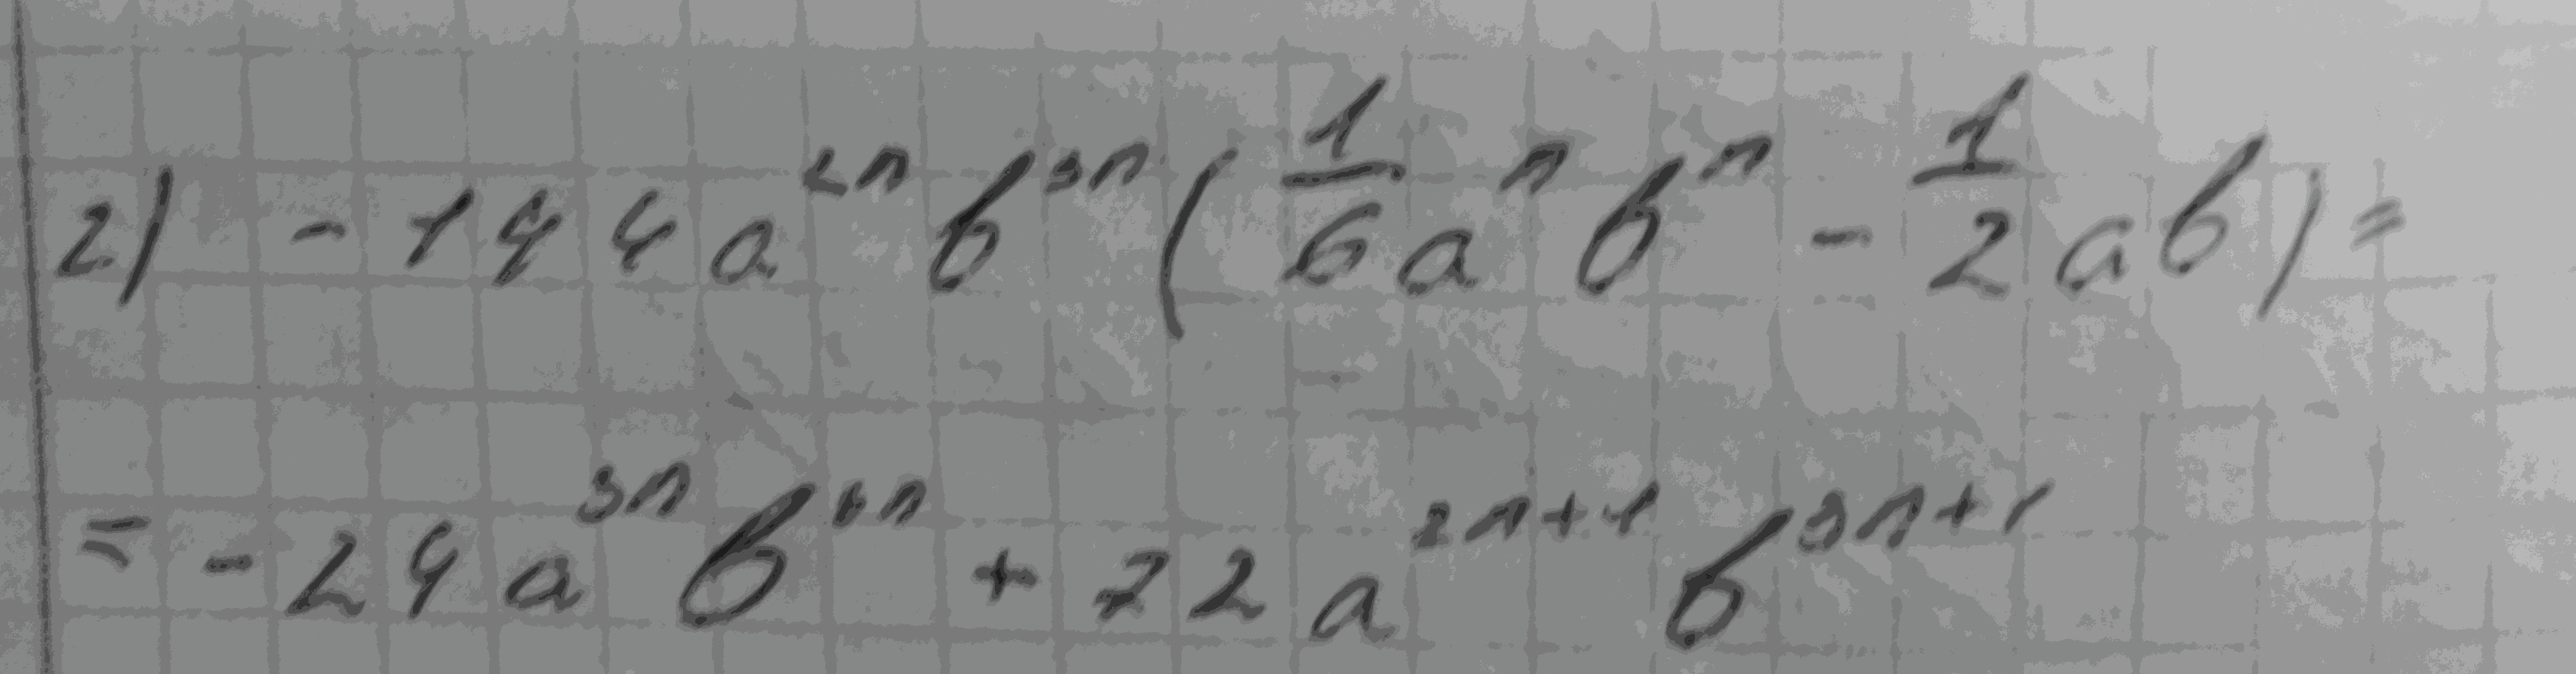 2) - 144a²ⁿb³ⁿ(1/6 aⁿbⁿ - 1/2 ab) =
= - 24a³ⁿb⁴ⁿ + 72a²ⁿ⁺¹ b³ⁿ⁺¹